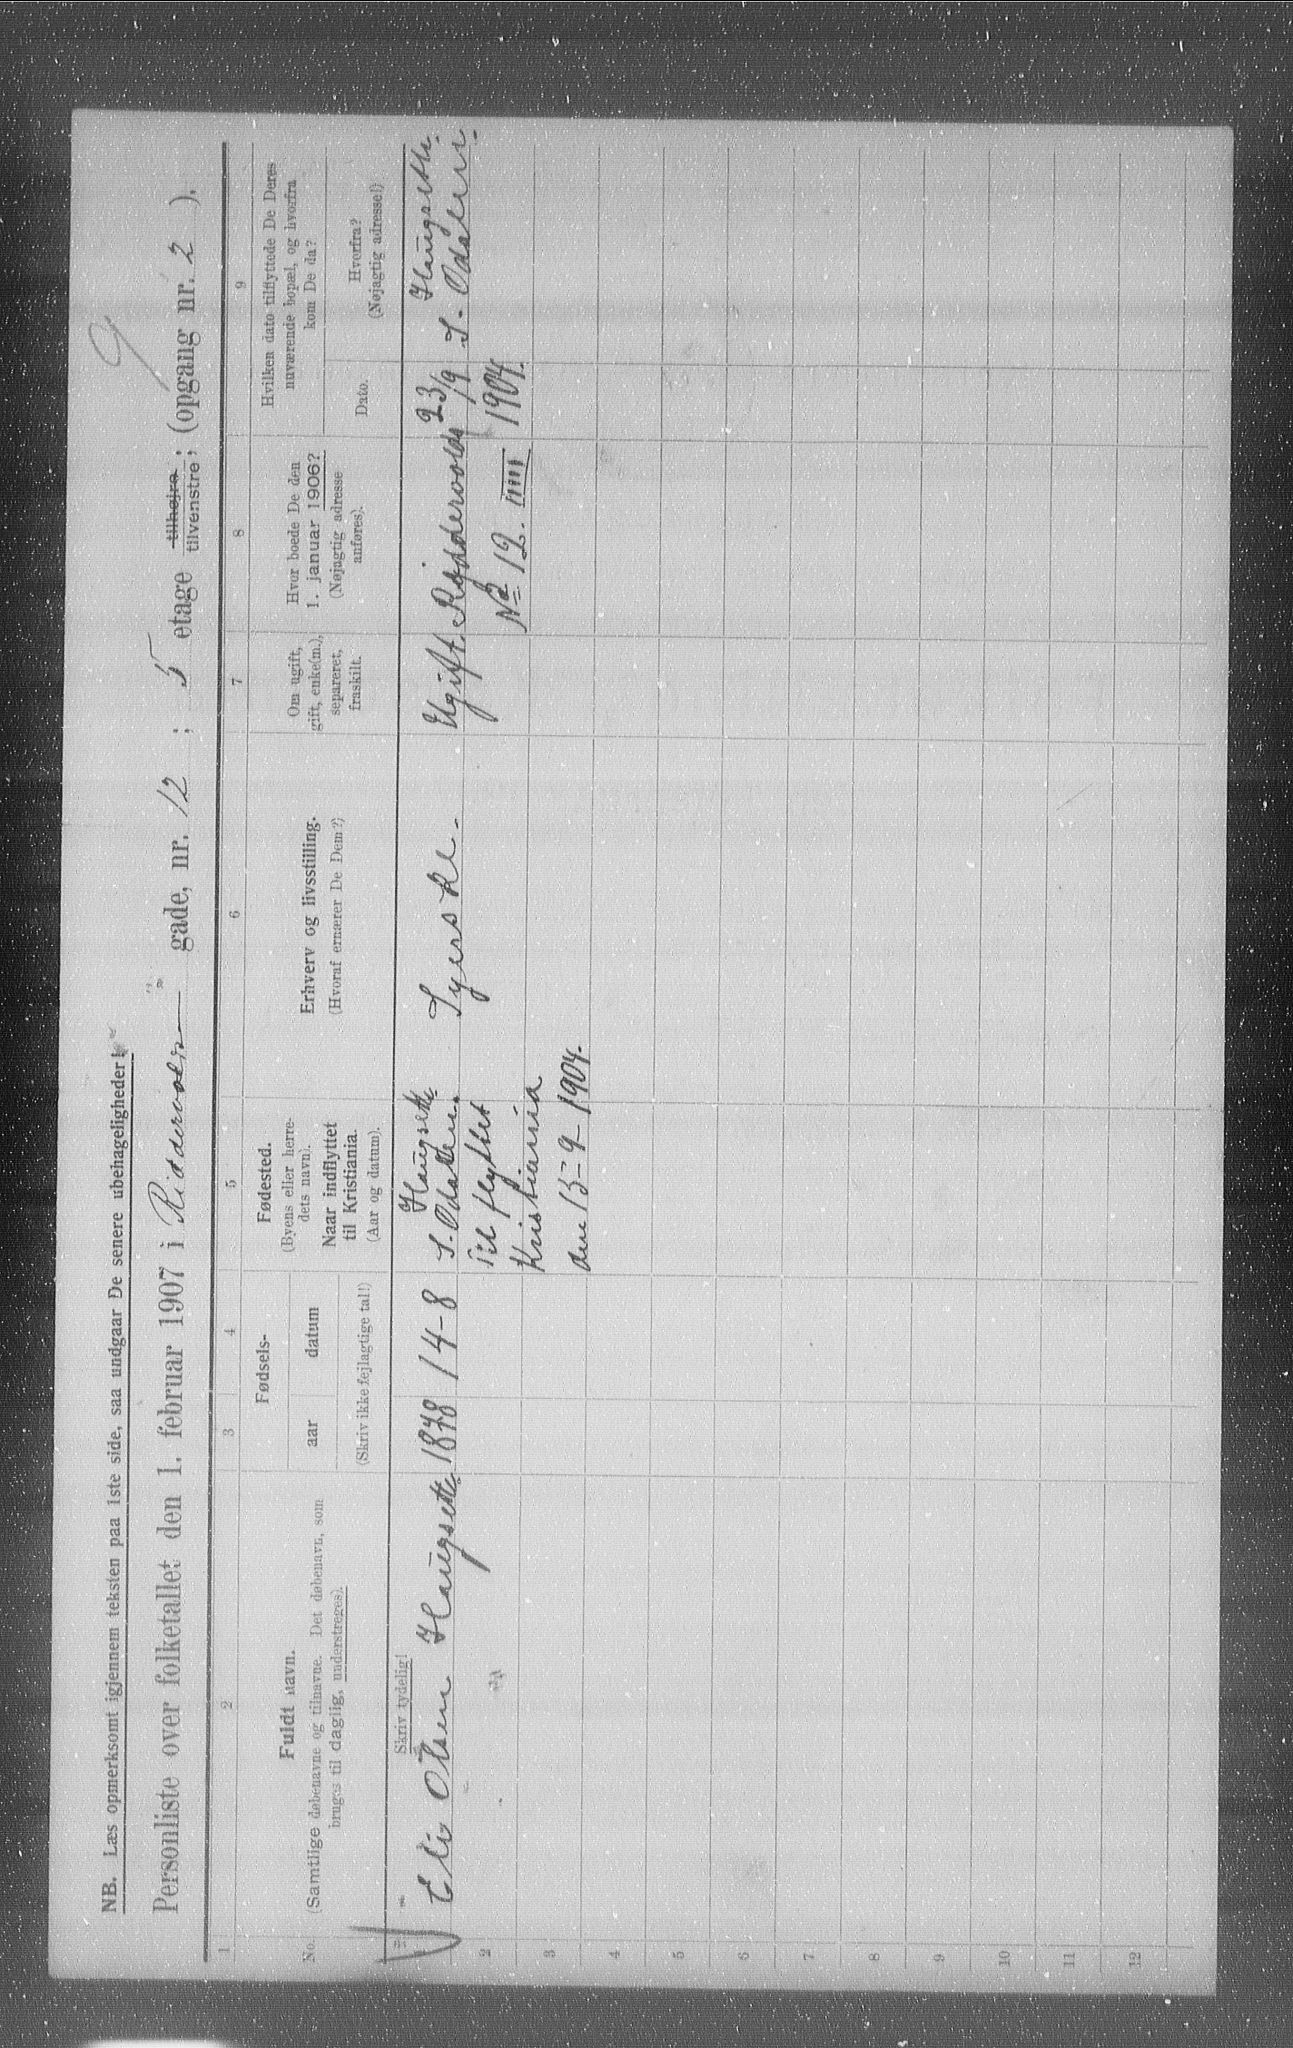 9
NB. Læs opmerksomt igjennem teksten paa 1ste side, saa undgaar De senere ubehageligheder!
Personliste over folketallet den 1. februar 1907 i Riddervolds gade, nr. 12 ; 5 etage tilhøjre tilvenstre; (opgang nr. 2 ).
1 2 3 4 5 6 7 8 9
No.
Fuldt navn.
(Samtlige døbenavne og tilnavne. Det døbenavn, som
bruges til daglig, understreges).
Fødsels-
aar datum
(Skriv ikke fejlagtige tal!)
Fødested.
(Byens eller herre-
dets navn).
Naar indflyttet
til Kristiania.
(Aar og datum).
Erhverv og livsstilling.
(Hvoraf ernærer De Dem?)
Om ugift,
gift, enke(m.),
separeret,
fraskilt.
Hvor boede De den
1. januar 1906?
(Nøjagtig adresse
anføres).
Hvilken dato tilflyttede De Deres
nuværende bopæl, og hvorfra
kom De da?
Dato.
Hvorfra?
(Nøjagtig adresse!)
Skriv tydelig!
Eli Olsen Haugsette. 1878 14-8
Haugsette
S. Odalen.
til flyttet
Kristiania
den 15-9-1904.
Syerske.
Ugift.
Riddervolds
No 12. IIIII
23/9
1904.
Haugsette.
S. Odalen.
2
3
4
5
6
7
8
9
10
11
12